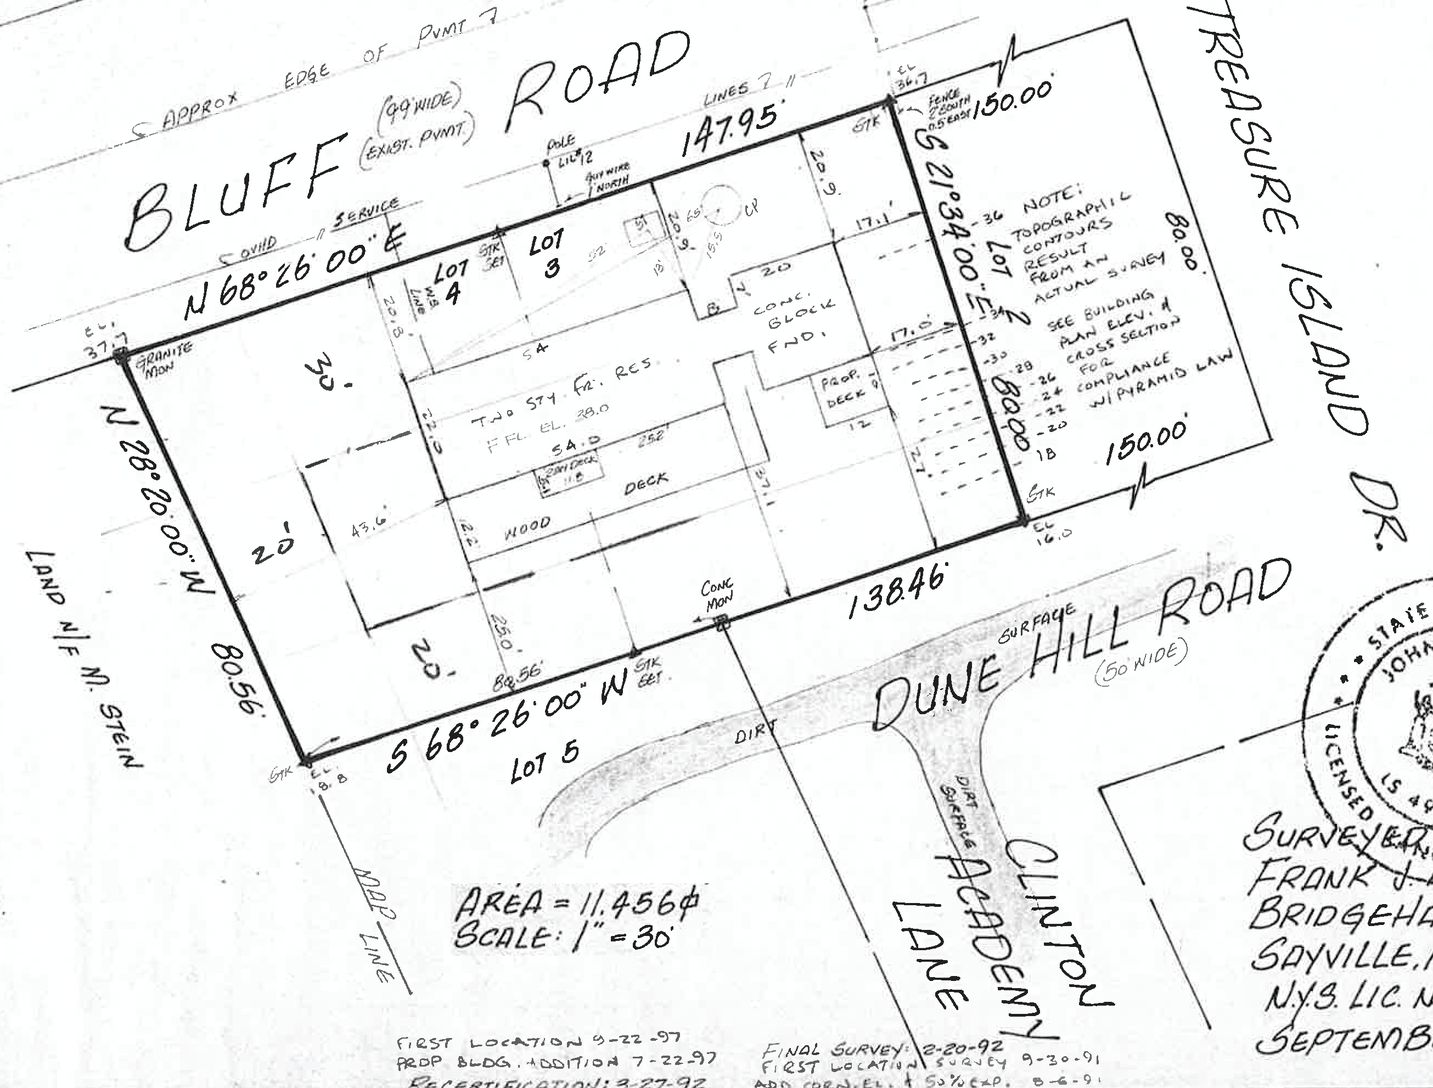 APPROX EDGE OF PVMT
BLUFF ROAD
(99' WIDE)
(EXIST. PVMT.)
OVHD SERVICE LINES
POLE
LIL#12
GUY WIRE
1' NORTH
147.95'
N 68° 26' 00" E
EL.
37.7
GRANITE
MON
STK
SET
LOT
4
LOT
3
W.S.
LINE
ST
CP
EL
36.7
STK
FENCE
2' SOUTH
0.5' EAST
150.00'
TREASURE ISLAND DR.
S 21° 34' 00" E
80.00
LOT 2
80.00'
NOTE:
TOPOGRAPHIC
CONTOURS
RESULT
FROM AN
ACTUAL SURVEY
SEE BUILDING
PLAN ELEV. &
CROSS SECTION
FOR
COMPLIANCE
W/PYRAMID LAW
36
34
32
30
28
26
24
22
20
18
150.00'
20.9'
20.9
17.1'
17.0'
65'
15.5
52
13'
20
7'
8'
CONC.
BLOCK
FND.
PROP.
DECK
9
12
27
20.8'
54
30'
TWO STY. FR. RES.
F FL. EL. 38.0
22.0
54.0
25.2'
2ND DECK
11.8
WOOD DECK
43.6'
12.2'
37.1
20'
20'
25.0'
N 28° 20' 00" W
80.56'
LAND N/F M. STEIN
STK
EL
16.0
CONC
MON
138.46'
80.56'
STK
SET
S 68° 26' 00" W
LOT 5
STK
EL.
DIRT SURFACE
DUNE HILL ROAD
(50' WIDE)
DIRT
SURFACE
MAP LINE
AREA = 11,456¢
SCALE: 1" = 30'
CLINTON
ACADEMY
LANE
STATE
LICENSED
SURVEYED
FRANK J.
BRIDGEHA
SAYVILLE,
N.Y.S. LIC. N
SEPTEMB
FIRST LOCATION 9-22-97
PROP BLDG. ADDITION 7-22-97
RECERTIFICATION: 3-27-92
FINAL SURVEY: 2-20-92
FIRST LOCATION SURVEY 9-30-91